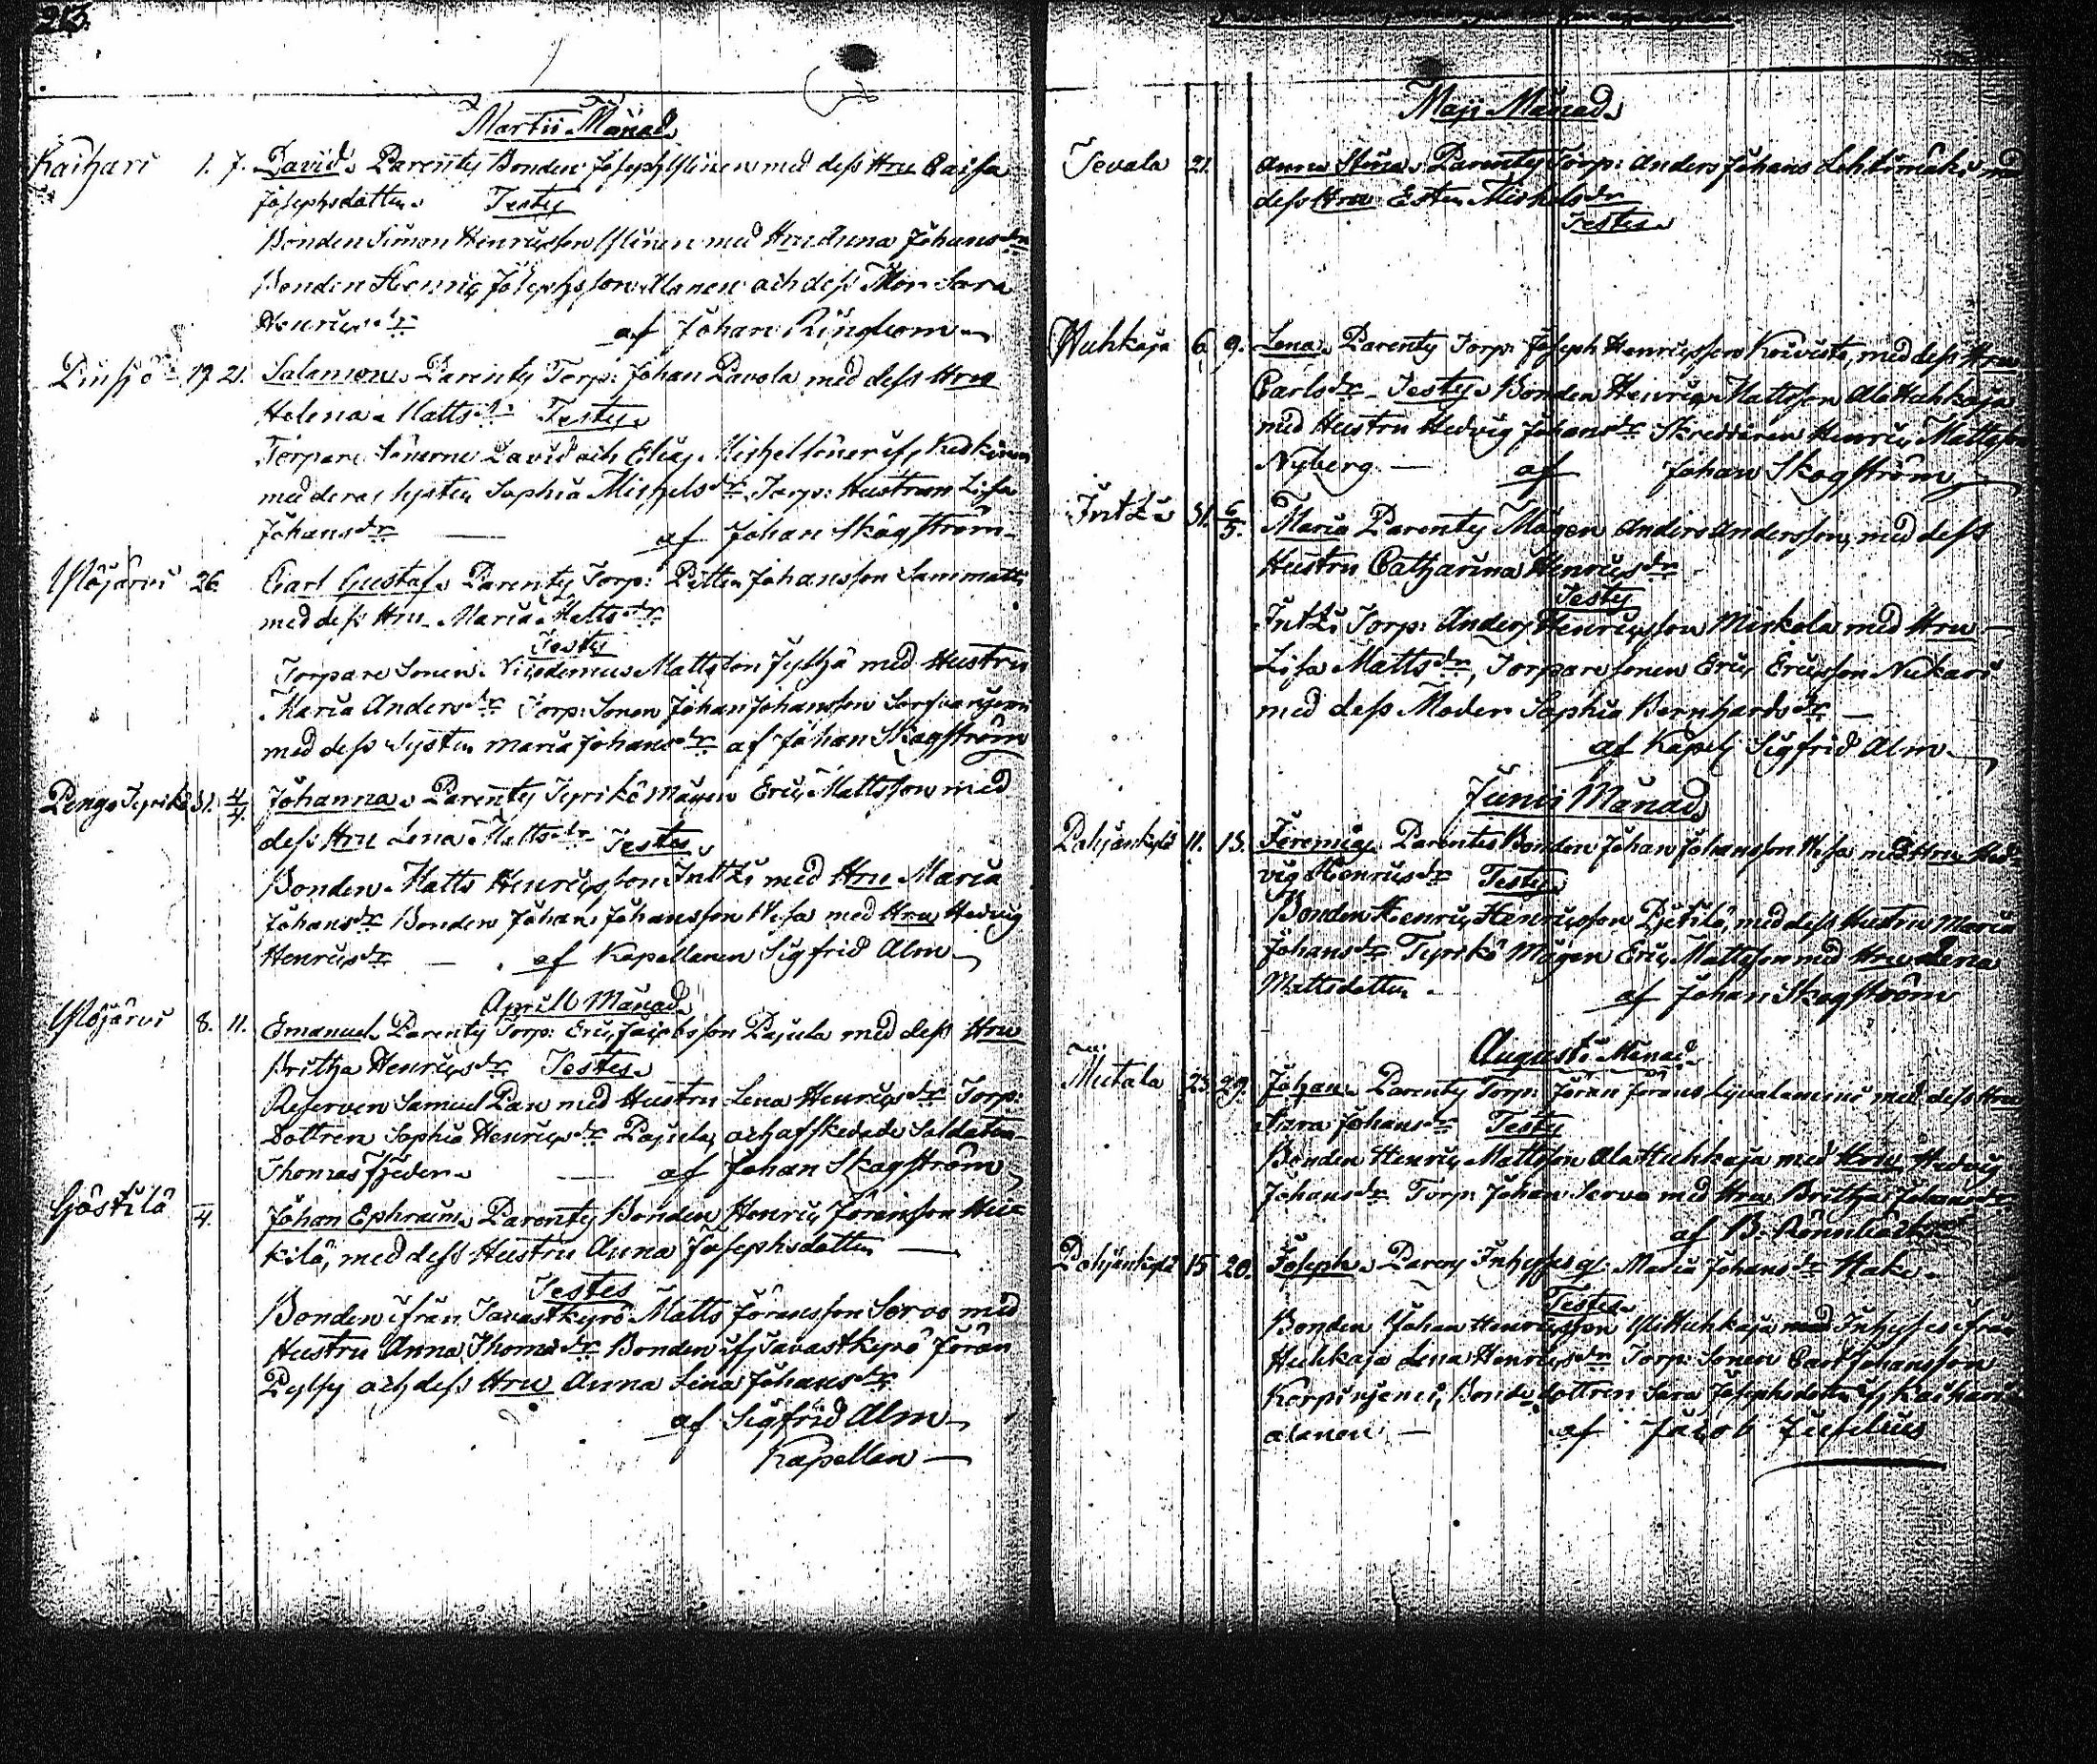 213.
Martii Månad.
Kaihari 1. 7. David. Parentes Bonden Joseph Ylinen med dess Hru Caisa
Josephsdotter. Testes
Bonden Simon Henricsson Ylinen med Hru Anna Johansdr
Bonden Henric Josephsson Alanen och dess Mor Sara
Henricsdr af Johan Ringbom
Pinsiö 19. 21. Salamon. Parentes Torp: Johan Pavola med dess Hru
Helena Mattsdr Testes.
Torpare Sönerne David och Elias Michelsöner if
med deras Syster Sophia Michelsdr Torp: Hustrun Lisa
Johansdr — af Johan Skogström
Ylöjärvi 26. Carl Gustaf. Parentes Torp: Petter Johansson Sammatti
med dess Hru Maria Mattsdr
Testes
Torpare Sonen Nicodemus Mattsson med Hustru
Maria Andersdr Torp: Sonen Johan Johansson
med dess Syster Maria Johansdr af Johan Skogström
Pengo Tyrikö 31. 4/4 Johanna. Parentes Tyrikö Mågen Eric Mattsson med
dess Hru Lena Mattsdr Testes.
Bonden Matts Henricsson Inttzi med Hru Maria
Johansdr Bonden Johan Johansson Wesa med Hru Hedvig
Henricsdr — af Kapellanen Sigfrid Alm
Aprill Månad.
Ylöjärvi 8. 11. Emanuel. Parentes Torp: Eric Jacobsson Pajula med dess Hru
Britha Henricsdr Testes.
Reserven Samuel Pan med Hustru Lena Henricsdr Torp:
Dottren Sophia Henricsdr Pajula, och afskedade Soldaten
Thomas Fjeder. — af Johan Skogström
Göstilä 4. Johan Ephraim. Parentes Bonden Henric Jöransson Heik-
kilä, med dess Hustru Anna Josephsdotter —
Testes
Bonden ifrån Tavastkyrö Matts Jöransson Sorvo med
Hustru Anna Thomasdr Bonden if Tavastkyrö Jöran
Pylsy och dess Hru Anna Lina Johansdr
af Sigfrid Alm
Kapellan —
Maji Månad.
Tevala 21. Anna Stina. Parentes Torp: Anders Johans Lehtimäki med
dess Hru Ester Michelsdr
Testes.
Huhkaja 6 9. Lena. Parentes Torp: Joseph Henricsson Koivisto, med dess Hru
Carlsdr Testes. Bonden Henric Mattsson Ala Huhkaja
med Hustru Hedvig Johansdr Skreddaren Henric Mattsson
Nyberg. — af Johan Skogström
Inttzi 31. 6/5. Maria Parentes Mågen Anders Andersson, med dess
Hustru Catharina Henricsdr
Testes
Inttzi Torp: Anders Henricsson Miskola med Hru —
Lisa Mattsdr, Torpare Sonen Eric Ericsson Nikari
med dess Moder Sophia Bernhardsdr —
af Kapel: Sigfrid Alm
Junii Månad.
Pohjankylä 11. 13. Jeremias. Parentes Bonden Johan Johansson Wesa med Hru Hed-
vig Henricsdr Testes
Bonden Henric Henricsson Pietilä, med dess Hustru Maria
Johansdr Tyrikö Mågen Eric Mattsson med Hru Lena
Mattsdotter. af Johan Skogström
Augusti Månad.
Mutala 23. 29. Johan. Parentes Torp: Jöran Jörans Syvälaniemi med dess Hru
Sara Johansdr Testes
Bonden Henric Mattsson Ala Huhkaja med Hru Hedvig
Johansdr Torp: Johan Servo med Hru Britha Johansdr
af B. Rönnbäck
Pohjankylä 15 20. Joseph. Parens Inhyses q: Maria Johansdr Hake.
Testes.
Bonden Johan Henricsson Yli Huhkaja Inhyses ifrån
Huhkaja Lena Henricsdr Torp: Sonen Carl Johansson
Korpiniemi, Bonde dottren Sara Josephsdotter if Kaihari
Alanen. — af Jacob Juselius